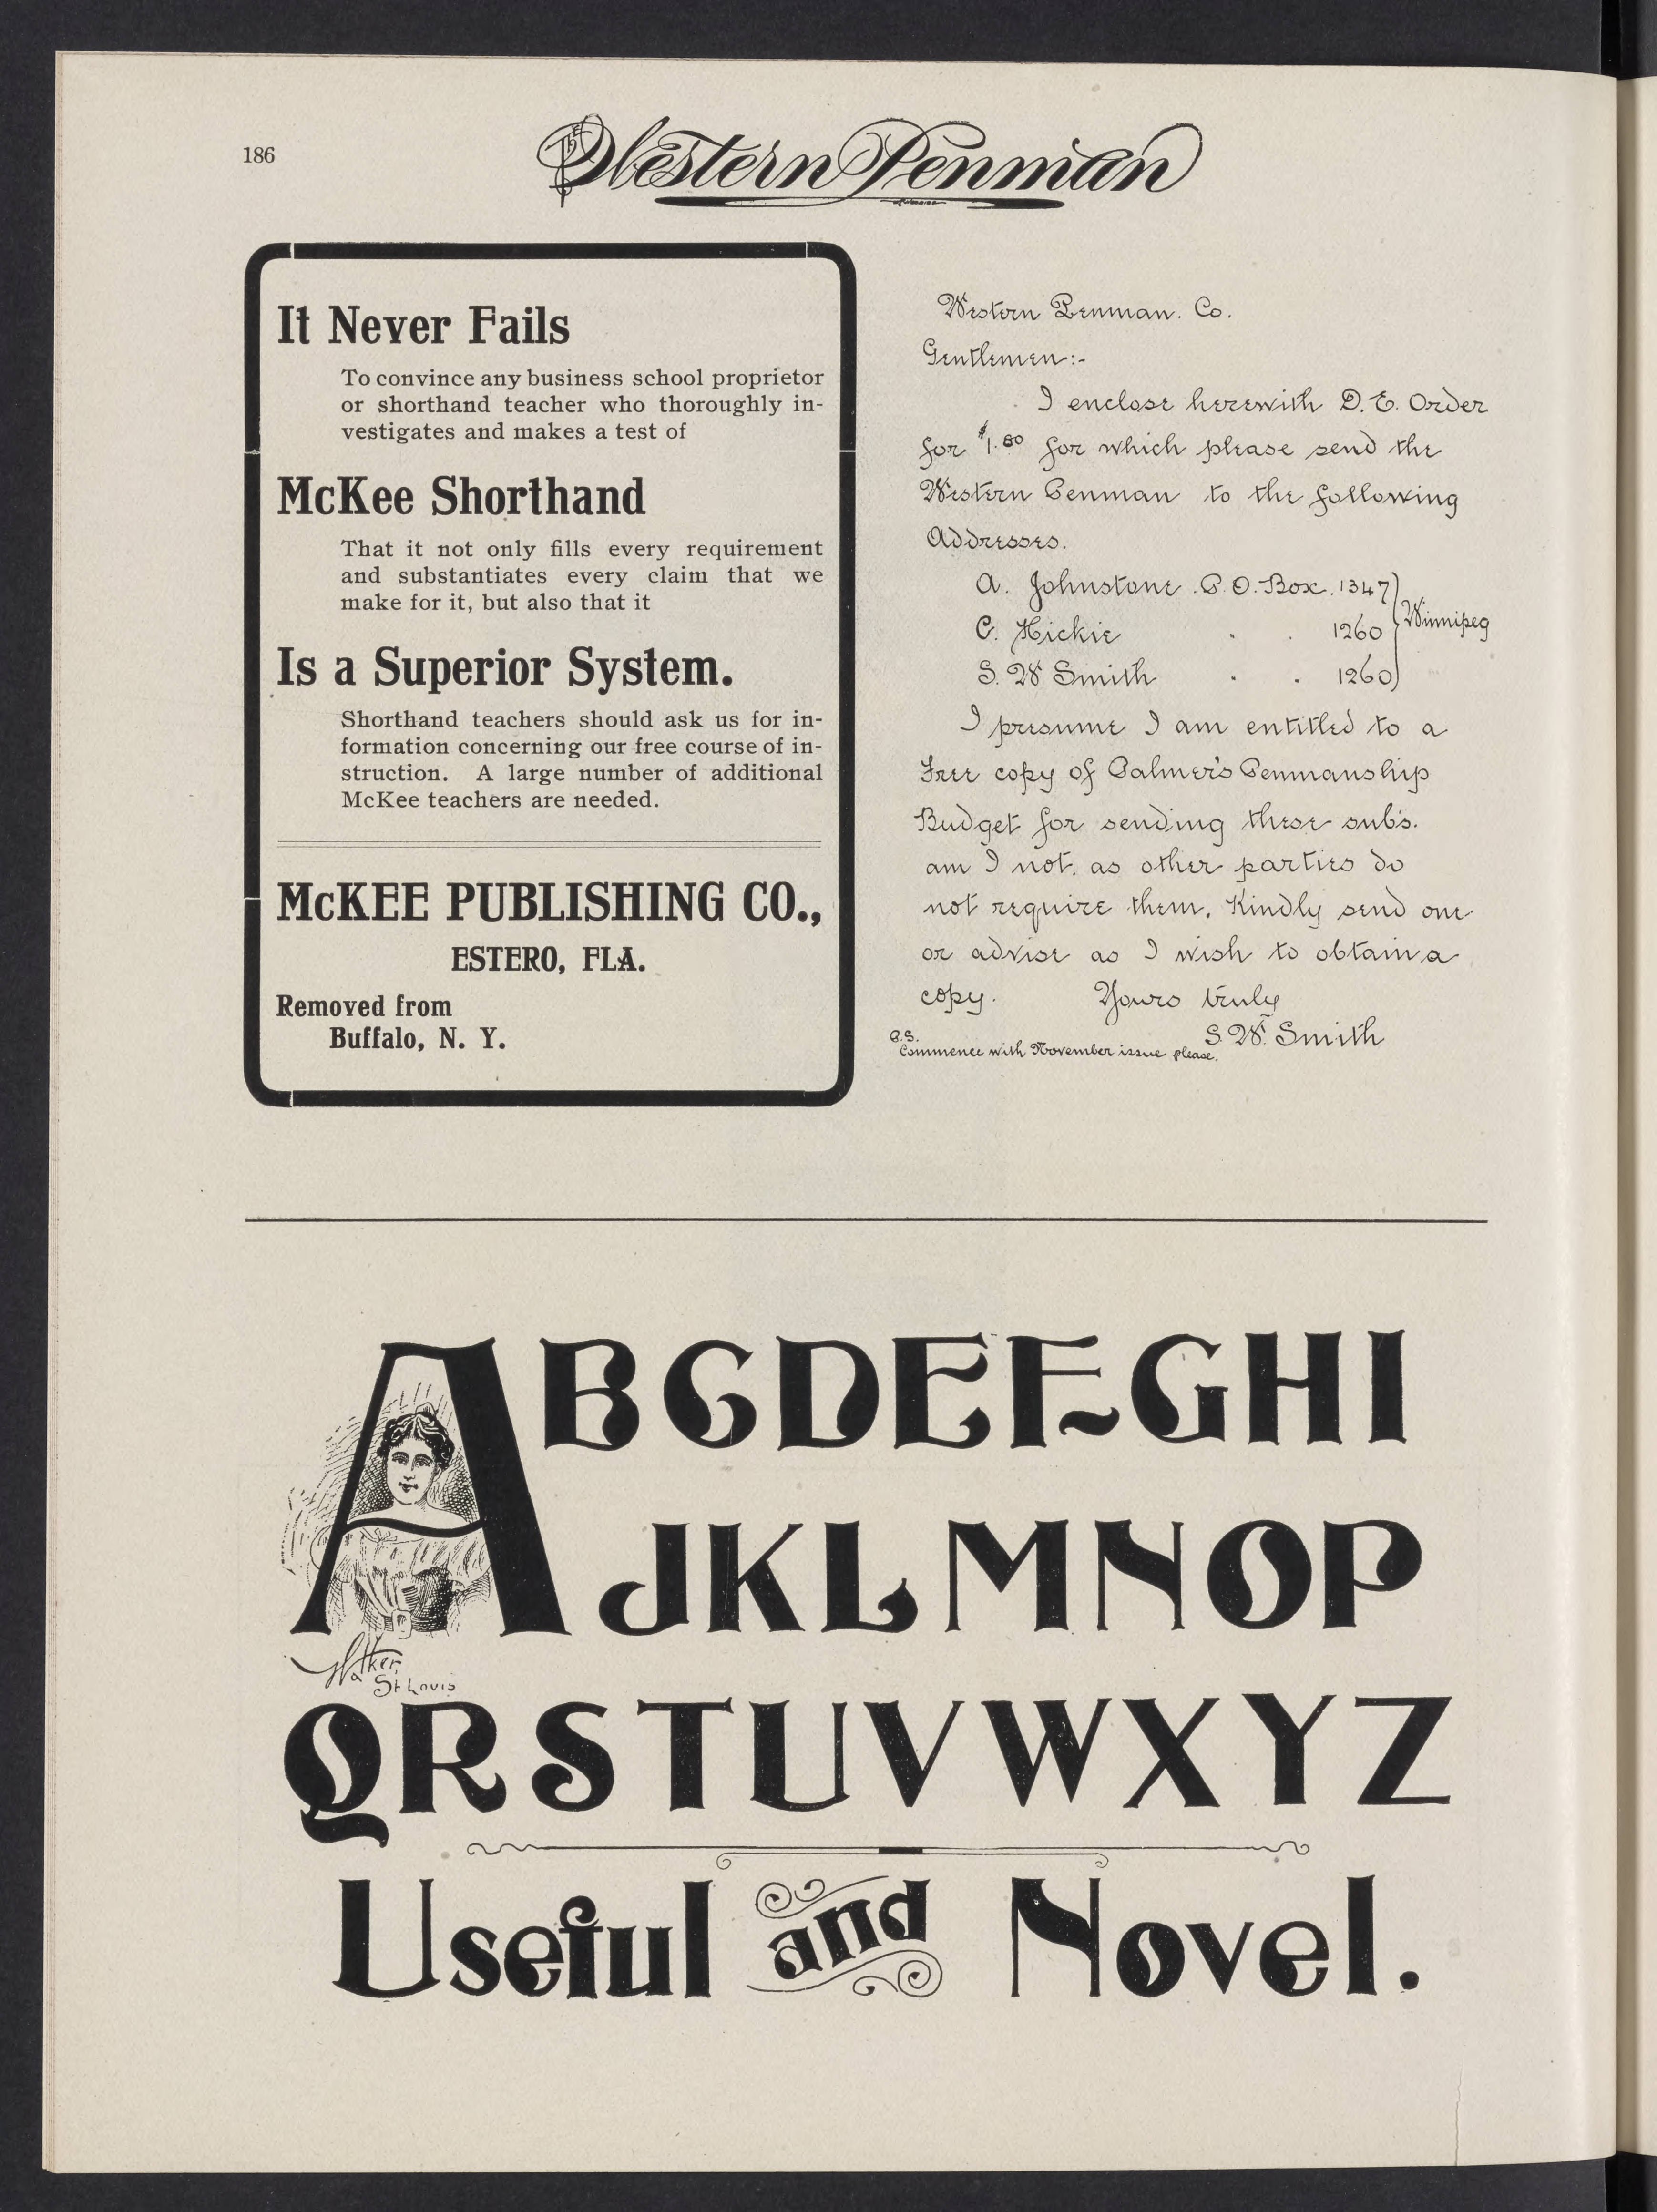 186
The Western Penman
It Never Fails
To convince any business school proprietor
or shorthand teacher who thoroughly in-
vestigates and makes a test of
McKee Shorthand
That it not only fills every requirement
and substantiates every claim that we
make for it, but also that it
Is a Superior System.
Shorthand teachers should ask us for in-
formation concerning our free course of in-
struction. A large number of additional
McKee teachers are needed.
McKEE PUBLISHING CO.,
ESTERO, FLA.
Removed from
Buffalo, N. Y.
Western Penman. Co.
Gentlemen:-
I enclose herewith D. E. Order
for $1.80 for which please send the
Western Penman to the following
Addresses.
A. Johnstone . P. O. Box. 1347
C. Hickie " " 1260 } Winnipeg
S. W Smith " " 1260
I presume I am entitled to a
Free copy of Palmer's Penmanship
Budget for sending these subs.
am I not. as other parties do
not require them. Kindly send one
or advise as I wish to obtain a
copy. Yours truly
S. W. Smith
P.S.
Commence with November issue please.
ABCDEFGHI
JKLMNOP
Walker,
St Louis
QRSTUVWXYZ
Useful and Novel.